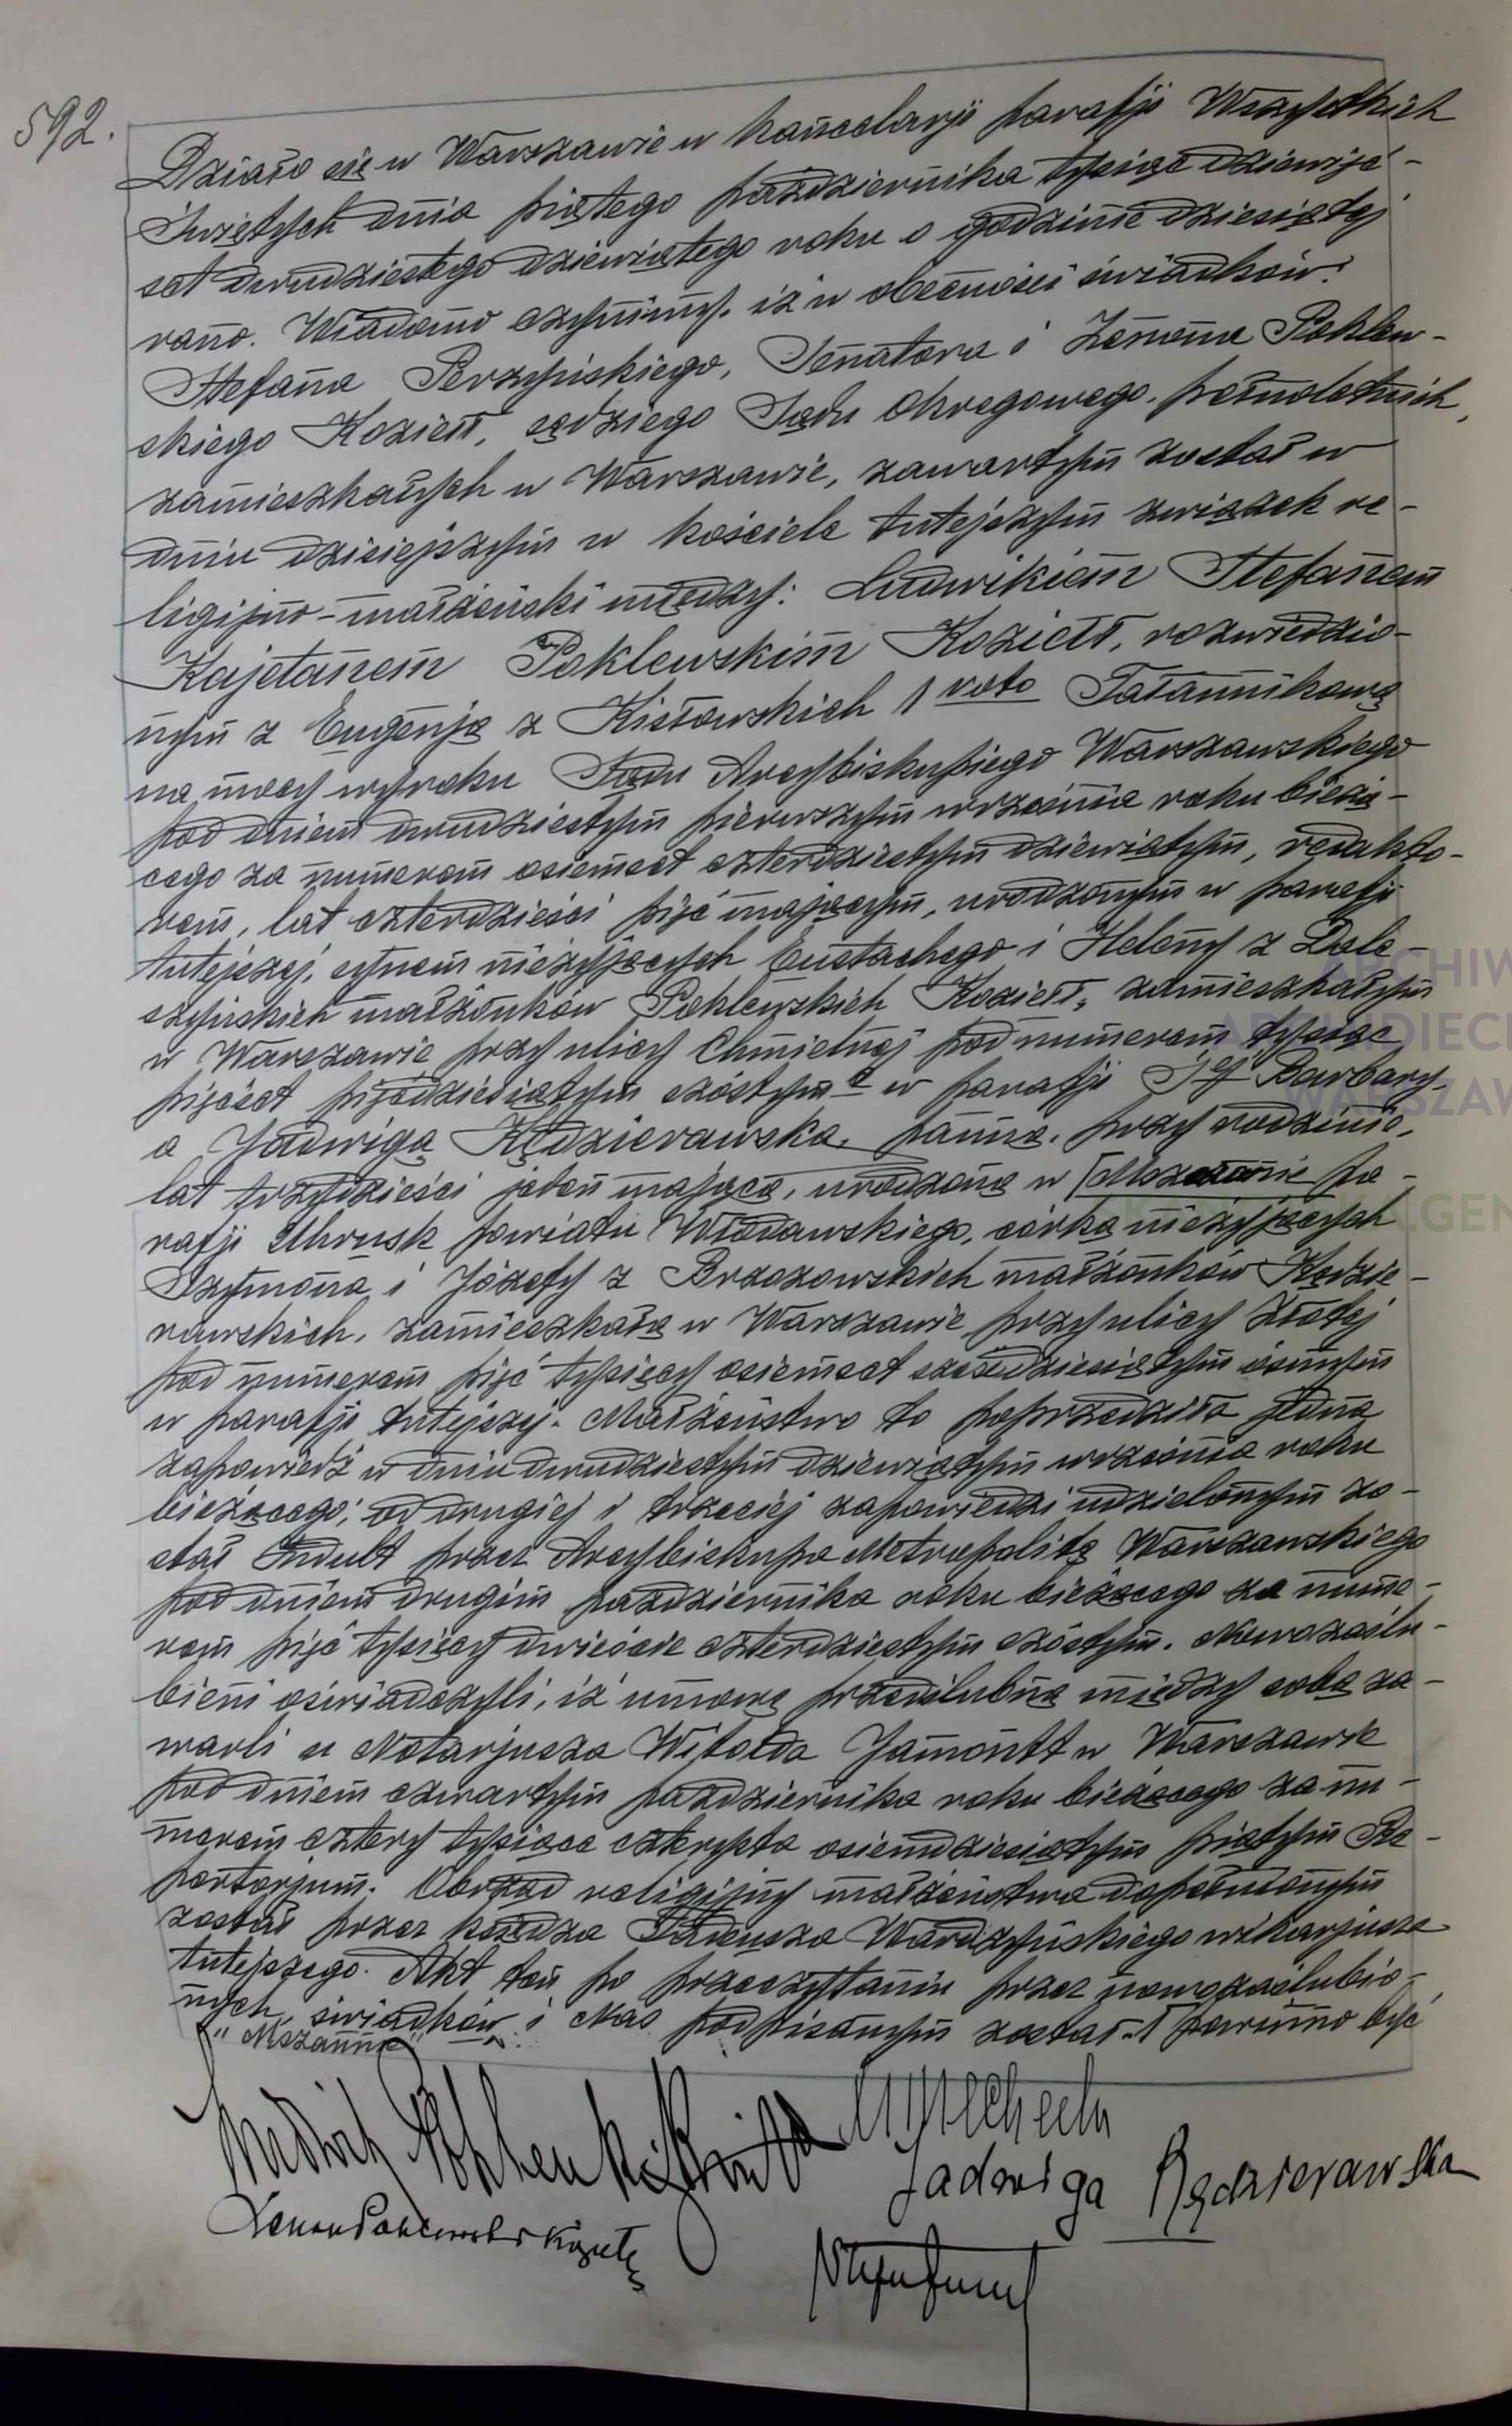 592.
Działo się w Warszawie w kancelarji parafji Wszystkich
Świętych dnia piątego października tysiąc dziewięć-
set dwudziestego dziewiątego roku o godzinie dziesiątej
rano. Wiadomo czynimy, iż w obecności świadków:
Stefana Perzyńskiego, Senatora i Zenona Poklew-
skiego Koziełł, sędziego Sądu Okręgowego, pełnoletnich,
zamieszkałych w Warszawie, zawartym został w
dniu dzisiejszym w kościele tutejszym związek re-
ligijno-małżeński między: Ludwikiem Stefanem
Kajetanem Poklewskim Koziełł, rozwiedzio-
nym z Eugenją z Kisłowskich 1 voto Tałannikową
na mocy wyroku Sądu Arcybiskupiego Warszawskiego
pod dniem dwudziestym pierwszym września roku bieżą-
cego za numerem osiemset czterdziestym dziewiątym, redakto-
rem, lat czterdzieści pięć mającym, urodzonym w parafji
tutejszej, synem nieżyjących Eustachego i Heleny z Dole-
szyńskich małżonków Poklewskich Koziełł, zamieszkałym
w Warszawie przy ulicy Chmielnej pod numerem tysiąc
pięćset pięćdziesiątym szóstym c w parafji Ś-ej Barbary,
a Jadwigą Kędzierawską, panną, przy rodzinie,
lat trzydzieści jeden mającą, urodzoną w pa-
rafji Uhrusk powiatu Włodawskiego, córką nieżyjących
Szymona i Józefy z Brzozowskich małżonków Kędzie-
rawskich, zamieszkałą w Warszawie przy ulicy Złotej
pod numerem pięć tysięcy osiemset sześćdziesiątym ósmym
w parafji tutejszej. Małżeństwo to poprzedziła jedna
zapowiedź w dniu dwudziestym dziewiątym września roku
bieżącego; od drugiej i trzeciej zapowiedzi udzielonym zo-
stał Indult przez Arcybiskupa Metropolitę Warszawskiego
pod dniem drugim października roku bieżącego za nume-
rem pięć tysięcy dwieście czterdziestym szóstym. Nowozaślu-
bieni oświadczyli, iż umowę przedślubną między sobą za-
warli u Notarjusza Witolda Jamontt w Warszawie
pod dniem czwartym października roku bieżącego za nu-
merem cztery tysiące czterysta osiemdziesiątym piątym Re-
pertorjum. Obrzęd religijny małżeństwa dopełnionym
został przez księdza Tadeusza Wardzyńskiego wikarjusza
tutejszego. Akt ten po przeczytaniu przez nowozaślubio-
nych, świadków i Nas podpisanym został. Powinno być
"Mszanna"
Ludwik Poklewski Koziełł
Jadwiga Kędzierawska
Zenon Poklewski Koziełł
ARCHIW
ARCHIDIECE
WARSZAW
LGEN